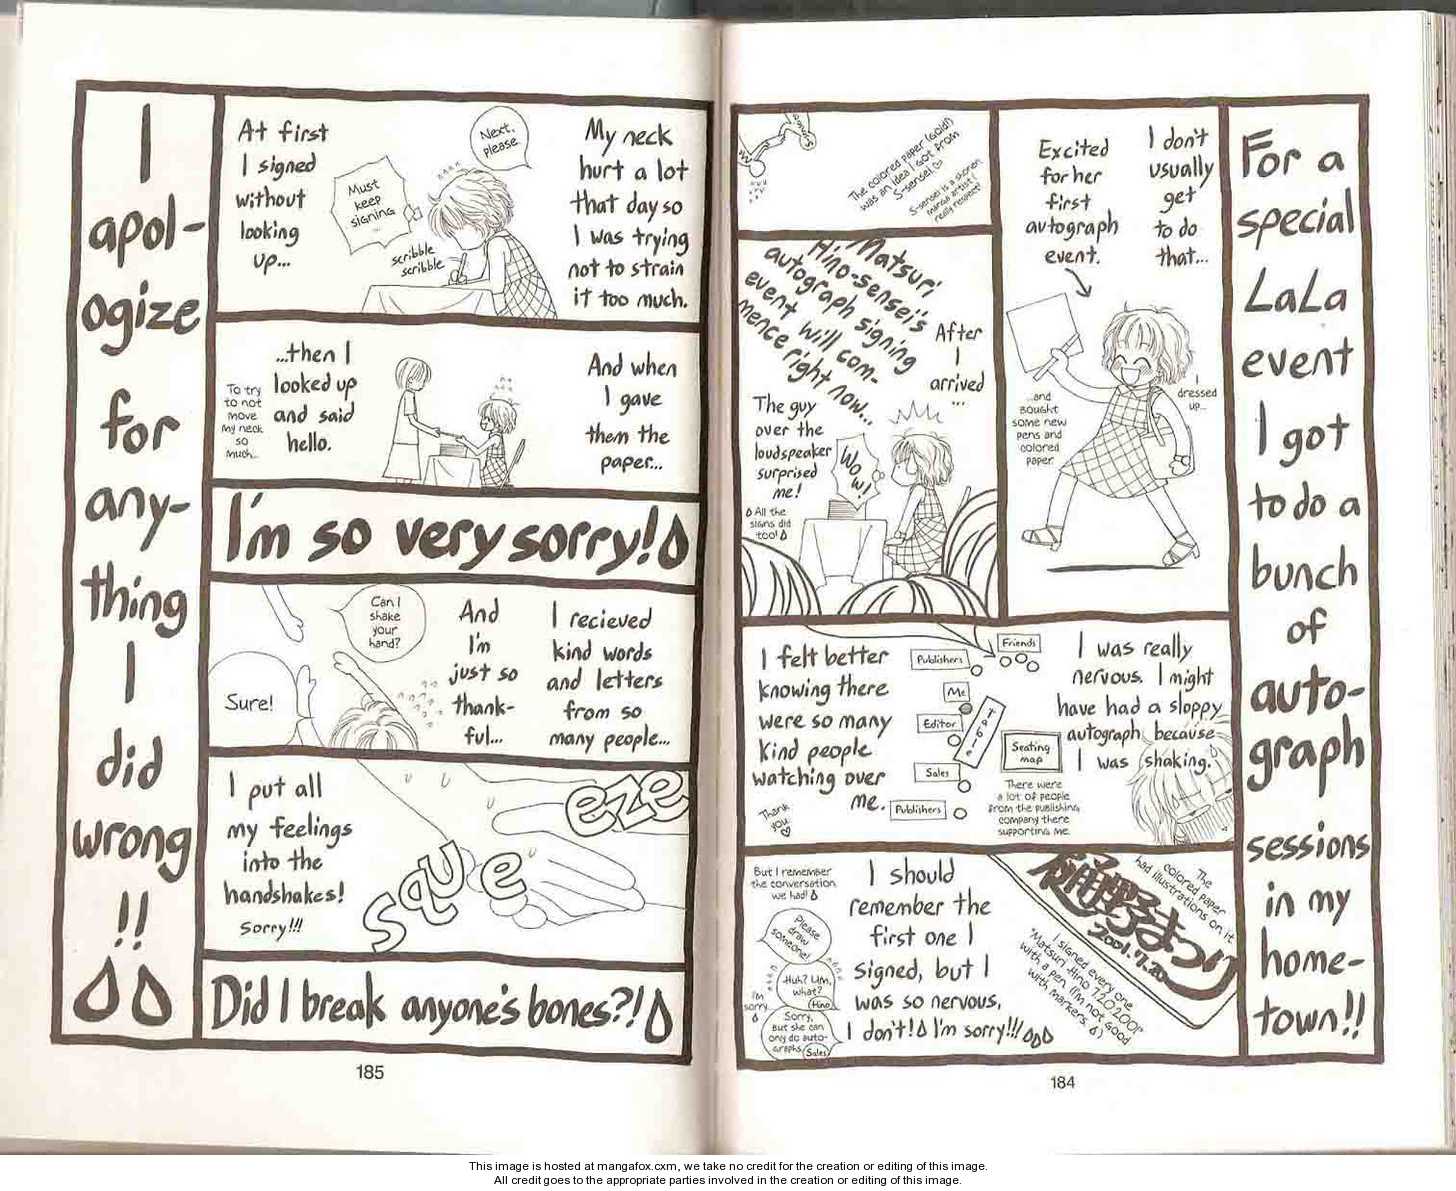 For a
special
LaLa
event
I got
to do a
bunch
of
auto-
graph
sessions
in my
home-
town!!
I don't
usually
get
to do
that...
Excited
for her
first
autograph
event.
I
dressed
up...
...and
bought
some new
pens and
colored
paper.
The colored paper (gold)
was an idea I got from
S-sensei. ♡
S-sensei is a shonen
manga artist I
really respect!
Matsuri
Hino-sensei's
autograph signing
event will com-
mence right now...
After
I
arrived
...
The guy
over the
loudspeaker
surprised
me!
All the
signs did
too!
Wow!
I was really
nervous. I might
have had a sloppy
autograph because
I was shaking.
Friends
Publishers
Me
Editor
Table
Sales
Publishers
Seating
map
There were
a lot of people
from the publishing
company there
supporting me.
I felt better
knowing there
were so many
kind people
watching over
me.
Thank
you
♡
The
colored paper
had illustrations on it.
樋野まつり
2001.7.20
I signed every one
"Matsuri Hino 7.20.2001"
with a pen (I'm not good
with markers.)
I should
remember the
first one I
signed, but I
was so nervous,
I don't! I'm sorry!!!
But I remember
the conversation
we had!
Please
draw
someone!
Huh? Um,
what?
Hino
I'm
sorry...
Sorry,
but she can
only do auto-
graphs.
Sales
185
184
I
apol-
ogize
for
any-
thing
I
did
wrong
!!
My neck
hurt a lot
that day so
I was trying
not to strain
it too much.
Next,
please
Must
keep
signing
...
scribble
scribble
At first
I signed
without
looking
up...
And when
I gave
them the
paper...
...then I
looked up
and said
hello.
To try
to not
move
my neck
so
much...
I'm so very sorry!
I recieved
kind words
and letters
from so
many people...
And
I'm
just so
thank-
ful...
Can I
shake
your
hand?
Sure!
I put all
my feelings
into the
handshakes!
Sorry!!!
squeeze
Did I break anyone's bones?!
This image is hosted at mangafox.cxm, we take no credit for the creation or editing of this image.
All credit goes to the appropriate parties involved in the creation or editing of this image.